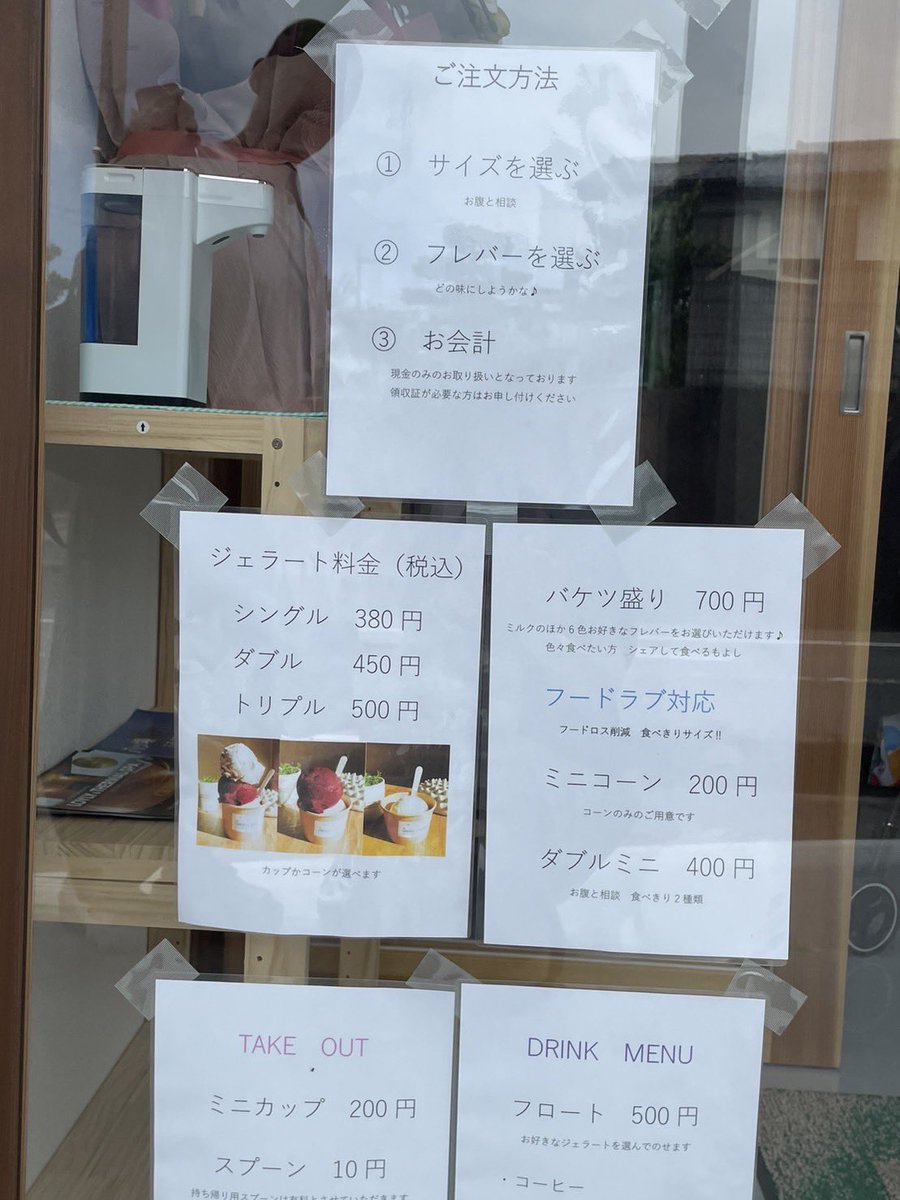 ご注文方法
① サイズを選ぶ
お腹と相談
② フレバーを選ぶ
どの味にしようかな♪
③ お会計
現金のみのお取り扱いとなっております
領収証が必要な方はお申し付けください
ジェラート料金（税込）
シングル 380円
ダブル 450円
トリプル 500円
カップかコーンが選べます
バケツ盛り 700円
ミルクのほか6色お好きなフレバーをお選びいただけます♪
色々食べたい方 シェアして食べるもよし
フードラブ対応
フードロス削減 食べきりサイズ!!
ミニコーン 200円
コーンのみのご用意です
ダブルミニ 400円
お腹と相談 食べきり2種類
TAKE OUT
ミニカップ 200円
スプーン 10円
持ち帰り用スプーンは有料とさせていただきます
DRINK MENU
フロート 500円
お好きなジェラートを選んでのせます
・コーヒー